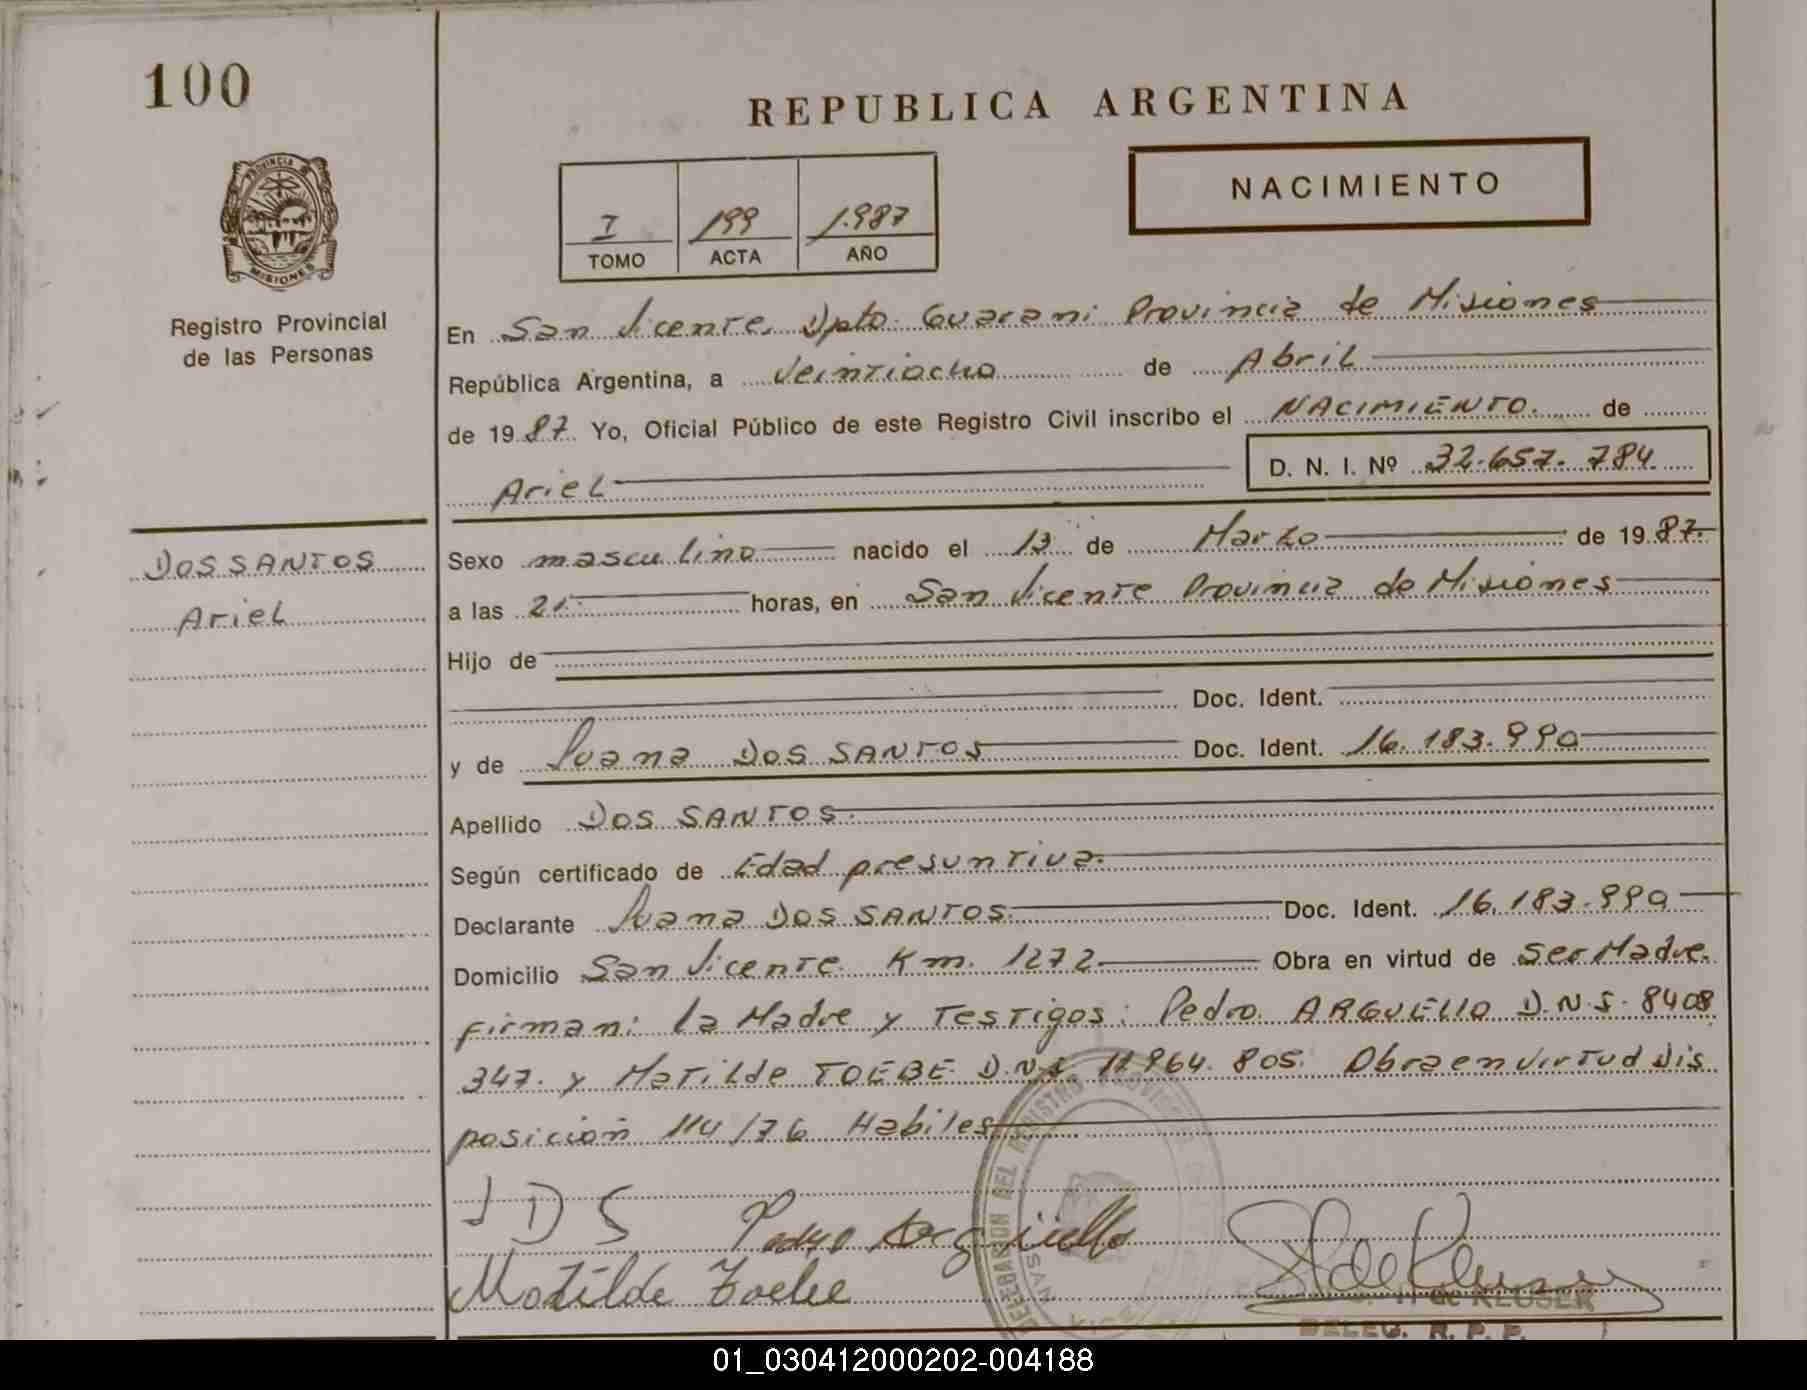 100
REPUBLICA ARGENTINA
PROVINCIA
MISIONES
NACIMIENTO
I 199 1.987
TOMO ACTA AÑO
Registro Provincial
de las Personas
En San Vicente, Dpto. Guarani Provincia de Misiones
República Argentina, a Veintiocho de Abril
de 1987. Yo, Oficial Público de este Registro Civil inscribo el NACIMIENTO. de
Ariel D. N. I. Nº 32.657.784.
DOS SANTOS
Ariel
Sexo masculino nacido el 13 de Marzo de 1987.
a las 21 horas, en San Vicente Provincia de Misiones
Hijo de
Doc. Ident.
y de Juana DOS SANTOS Doc. Ident. 16.183.990
Apellido DOS SANTOS.
Según certificado de Edad presuntiva.
Declarante Juana DOS SANTOS. Doc. Ident. 16.183.990
Domicilio San Vicente Km. 1272 Obra en virtud de ser Madre.
firman: la Madre y Testigos: Pedro ARGUELLO D.N.I. 8408
347. y Matilde TOEBE D.N.I. 11.964.805. Obra en virtud Dis
posición 114/76 Habiles
J D S Pedro Argüello
Matilde Toebe
DELEGACION DEL REGISTRO
SAN VICENTE
H de KLUSER
DELEG. R. P. P.
01_030412000202-004188